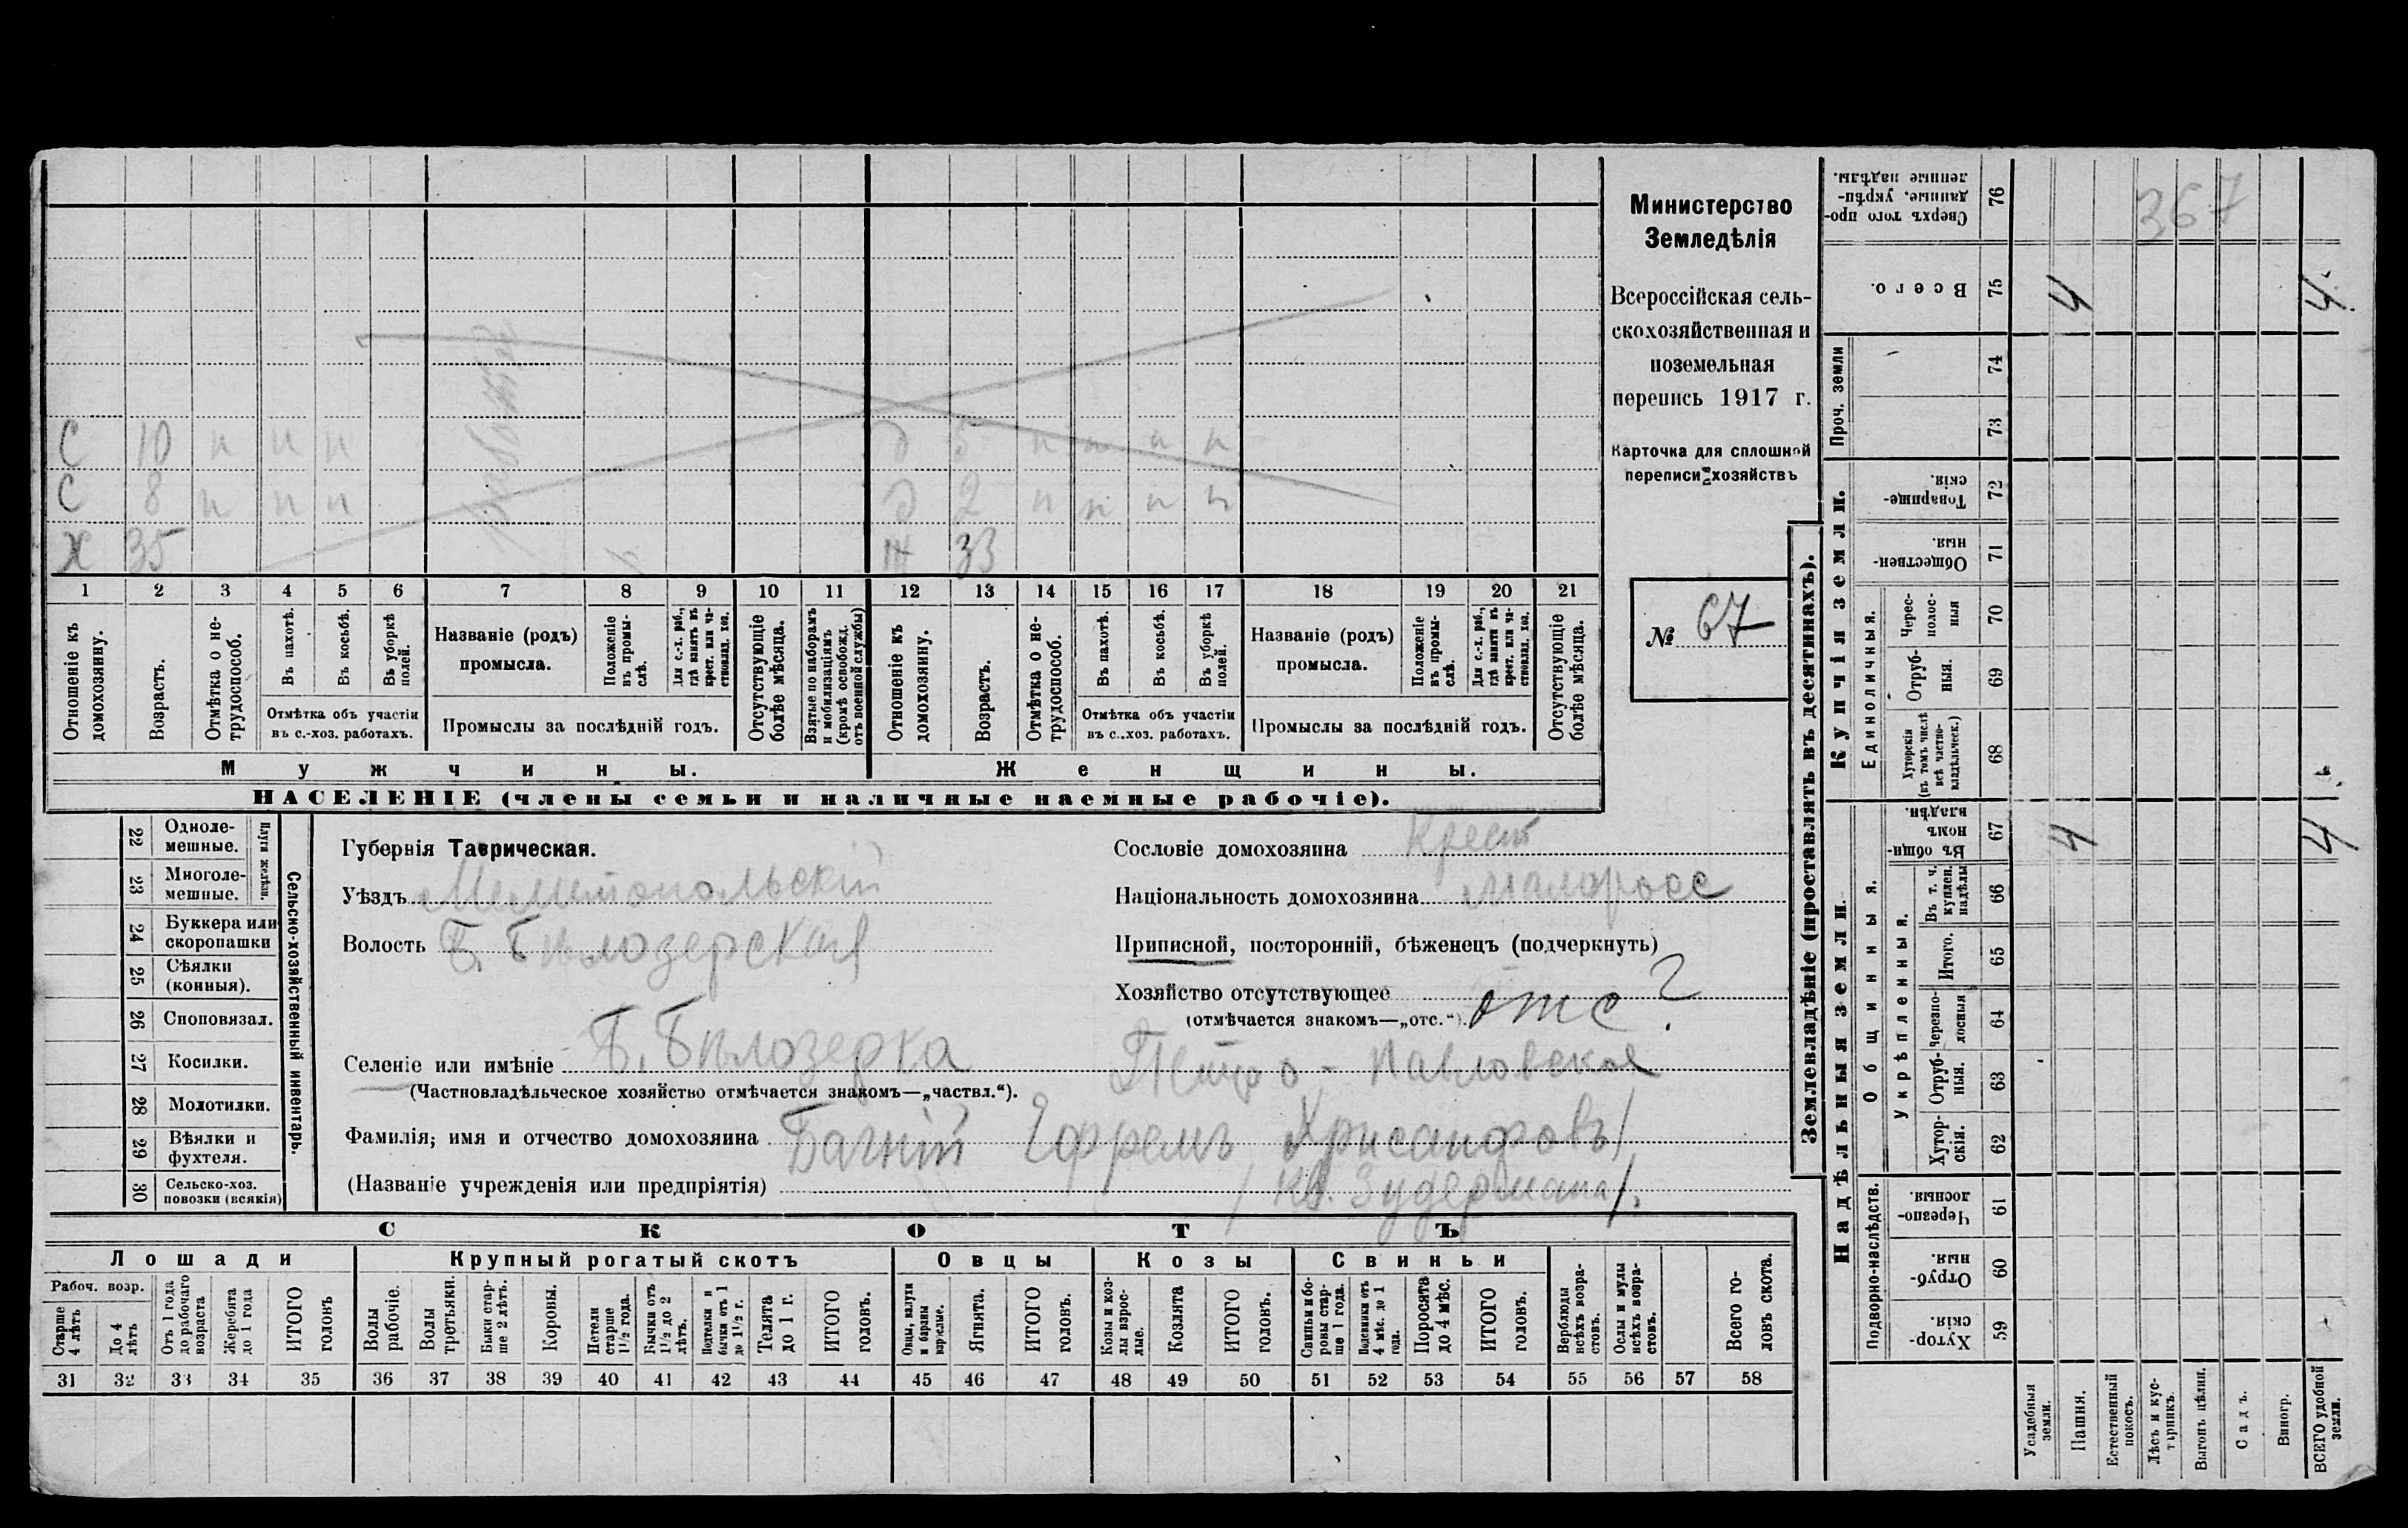 С 10 н н н д 5 н н н н
С 8 н н н д 2 н н н н
Х 35 Ж 33
1 2 3 4 5 6 7 8 9 10 11 12 13 14 15 16 17 18 19 20 21
Отношеніе къ домохозяину.
Возрастъ.
Отмѣтка о не-трудоспособ.
Въ пахотѣ.
Въ косьбѣ.
Въ уборкѣ полей.
Отмѣтка объ участіи
въ с.-хоз. работахъ.
Названіе (родъ)
промысла.
Положеніе въ промы-слѣ.
Для с.-х. раб., гдѣ занятъ въ крест. или ча-стновлад. хоз.
Промыслы за послѣдній годъ.
Отсутствующіе болѣе мѣсяца.
Взятые по наборамъ и мобилизаціямъ (кромѣ освобожд. отъ военной службы)
Отношеніе къ домохозяину.
Возрастъ.
Отмѣтка о не-трудоспособ.
Въ пахотѣ.
Въ косьбѣ.
Въ уборкѣ полей.
Отмѣтка объ участіи
въ с.-хоз. работахъ.
Названіе (родъ)
промысла.
Положеніе въ промы-слѣ.
Для с.-х. раб., гдѣ заняты въ крест. или ча-стновлад. хоз.
Промыслы за послѣдній годъ.
Отсутствующіе болѣе мѣсяца.
Мужчины. Женщины.
НАСЕЛЕНІЕ (члены семьи и наличные наемные рабочіе).
Министерство
Земледѣлія
Всероссійская сель-
скохозяйственная и
поземельная
перепись 1917 г.
Карточка для сплошной
переписи хозяйствъ
№ 67
22 Одноле-мешные.
23 Многоле-мешные.
Плуги желѣзн.
24 Буккера или скоропашки
25 Сѣялки (конныя).
26 Сноповязал.
27 Косилки.
28 Молотилки.
29 Вѣялки и фухтеля.
30 Сельско-хоз. повозки (всякія)
Сельско-хозяйственный инвентарь.
Губернія Таврическая.
Уѣздъ Мелитопольскій
Волость Б. Бѣлозерская
Сословіе домохозяина Крест
Національность домохозяина Малоросс
Приписной, посторонній, бѣженецъ (подчеркнуть)
Хозяйство отсутствующее отс ?
(отмѣчается знакомъ—„отс.“).
Селеніе или имѣніе Б. Бѣлозерка Петро-Павловская
(Частновладѣльческое хозяйство отмѣчается знакомъ—„частвл.“).
Фамилія, имя и отчество домохозяина Багній Ефремъ Хрисанфовъ
(Названіе учрежденія или предпріятія) /Кв. Зудермана/.
СКОТЪ
Лошади Крупный рогатый скотъ Овцы Козы Свиньи
Рабоч. возр.
Старше 4 лѣтъ
До 4 лѣтъ
Отъ 1 года до рабочаго возраста
Жеребята до 1 года
ИТОГО головъ
Волы рабочіе.
Волы третьяки.
Быки стар-ше 2 лѣтъ.
Коровы.
Нетели старше 1½ года.
Бычки отъ 1½ до 2 лѣтъ.
Подтелки и бычки отъ 1 до 1½ г.
Телята до 1 г.
ИТОГО головъ.
Овцы, валухи и бараны взрослые.
Ягнята.
ИТОГО головъ.
Козы и коз-лы взрос-лые.
Козлята
ИТОГО головъ.
Свиньи и бо-ровы стар-ше 1 года.
Подсвинки отъ 4 мѣс. до 1 года.
Поросята до 4 мѣс.
ИТОГО головъ.
Верблюды всѣхъ возра-стовъ.
Ослы и мулы всѣхъ возра-стовъ.
Всего го-ловъ скота.
31 32 33 34 35 36 37 38 39 40 41 42 43 44 45 46 47 48 49 50 51 52 53 54 55 56 57 58
Землевладѣніе (проставлять въ десятинахъ).
Надѣльныя земли.
Купчія земли.
Проч. земли
Подворно-наслѣдств.
Общинныя.
Укрѣпленныя.
Единоличныя.
76 Сверхъ того про-данные, укрѣп-ленные надѣлы. 367
75 Всего. 4 4
74
73
72 Товарище-скія.
71 Обществен-ныя.
70 Черес-полос-ныя
69 Отруб-ныя.
68 Хуторскія (въ томъ числѣ всѣ частно-владѣльческ.)
67 Въ общи-номъ владѣн. 4 4
66 Въ т. ч. куплен. надѣлы
65 Итого.
64 Черезпо-лосныя
63 Отруб-ныя.
62 Хутор-скія.
61 Черезпо-лосныя.
60 Отруб-ныя.
59 Хутор-скія.
Усадебныя земли.
Пашня.
Естественный покосъ.
Лѣсъ и кус-тарникъ.
Выгонъ цѣлин.
Садъ.
Виногр.
ВСЕГО удобной земли.